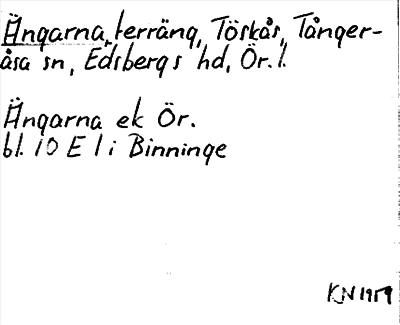 Ängarna, terräng, Töskås, Tånger-
åsa sn, Edsbergs hd, Ör. l.
Ängarna ek Ör.
bl. 10 E l i Binninge
KN 1959